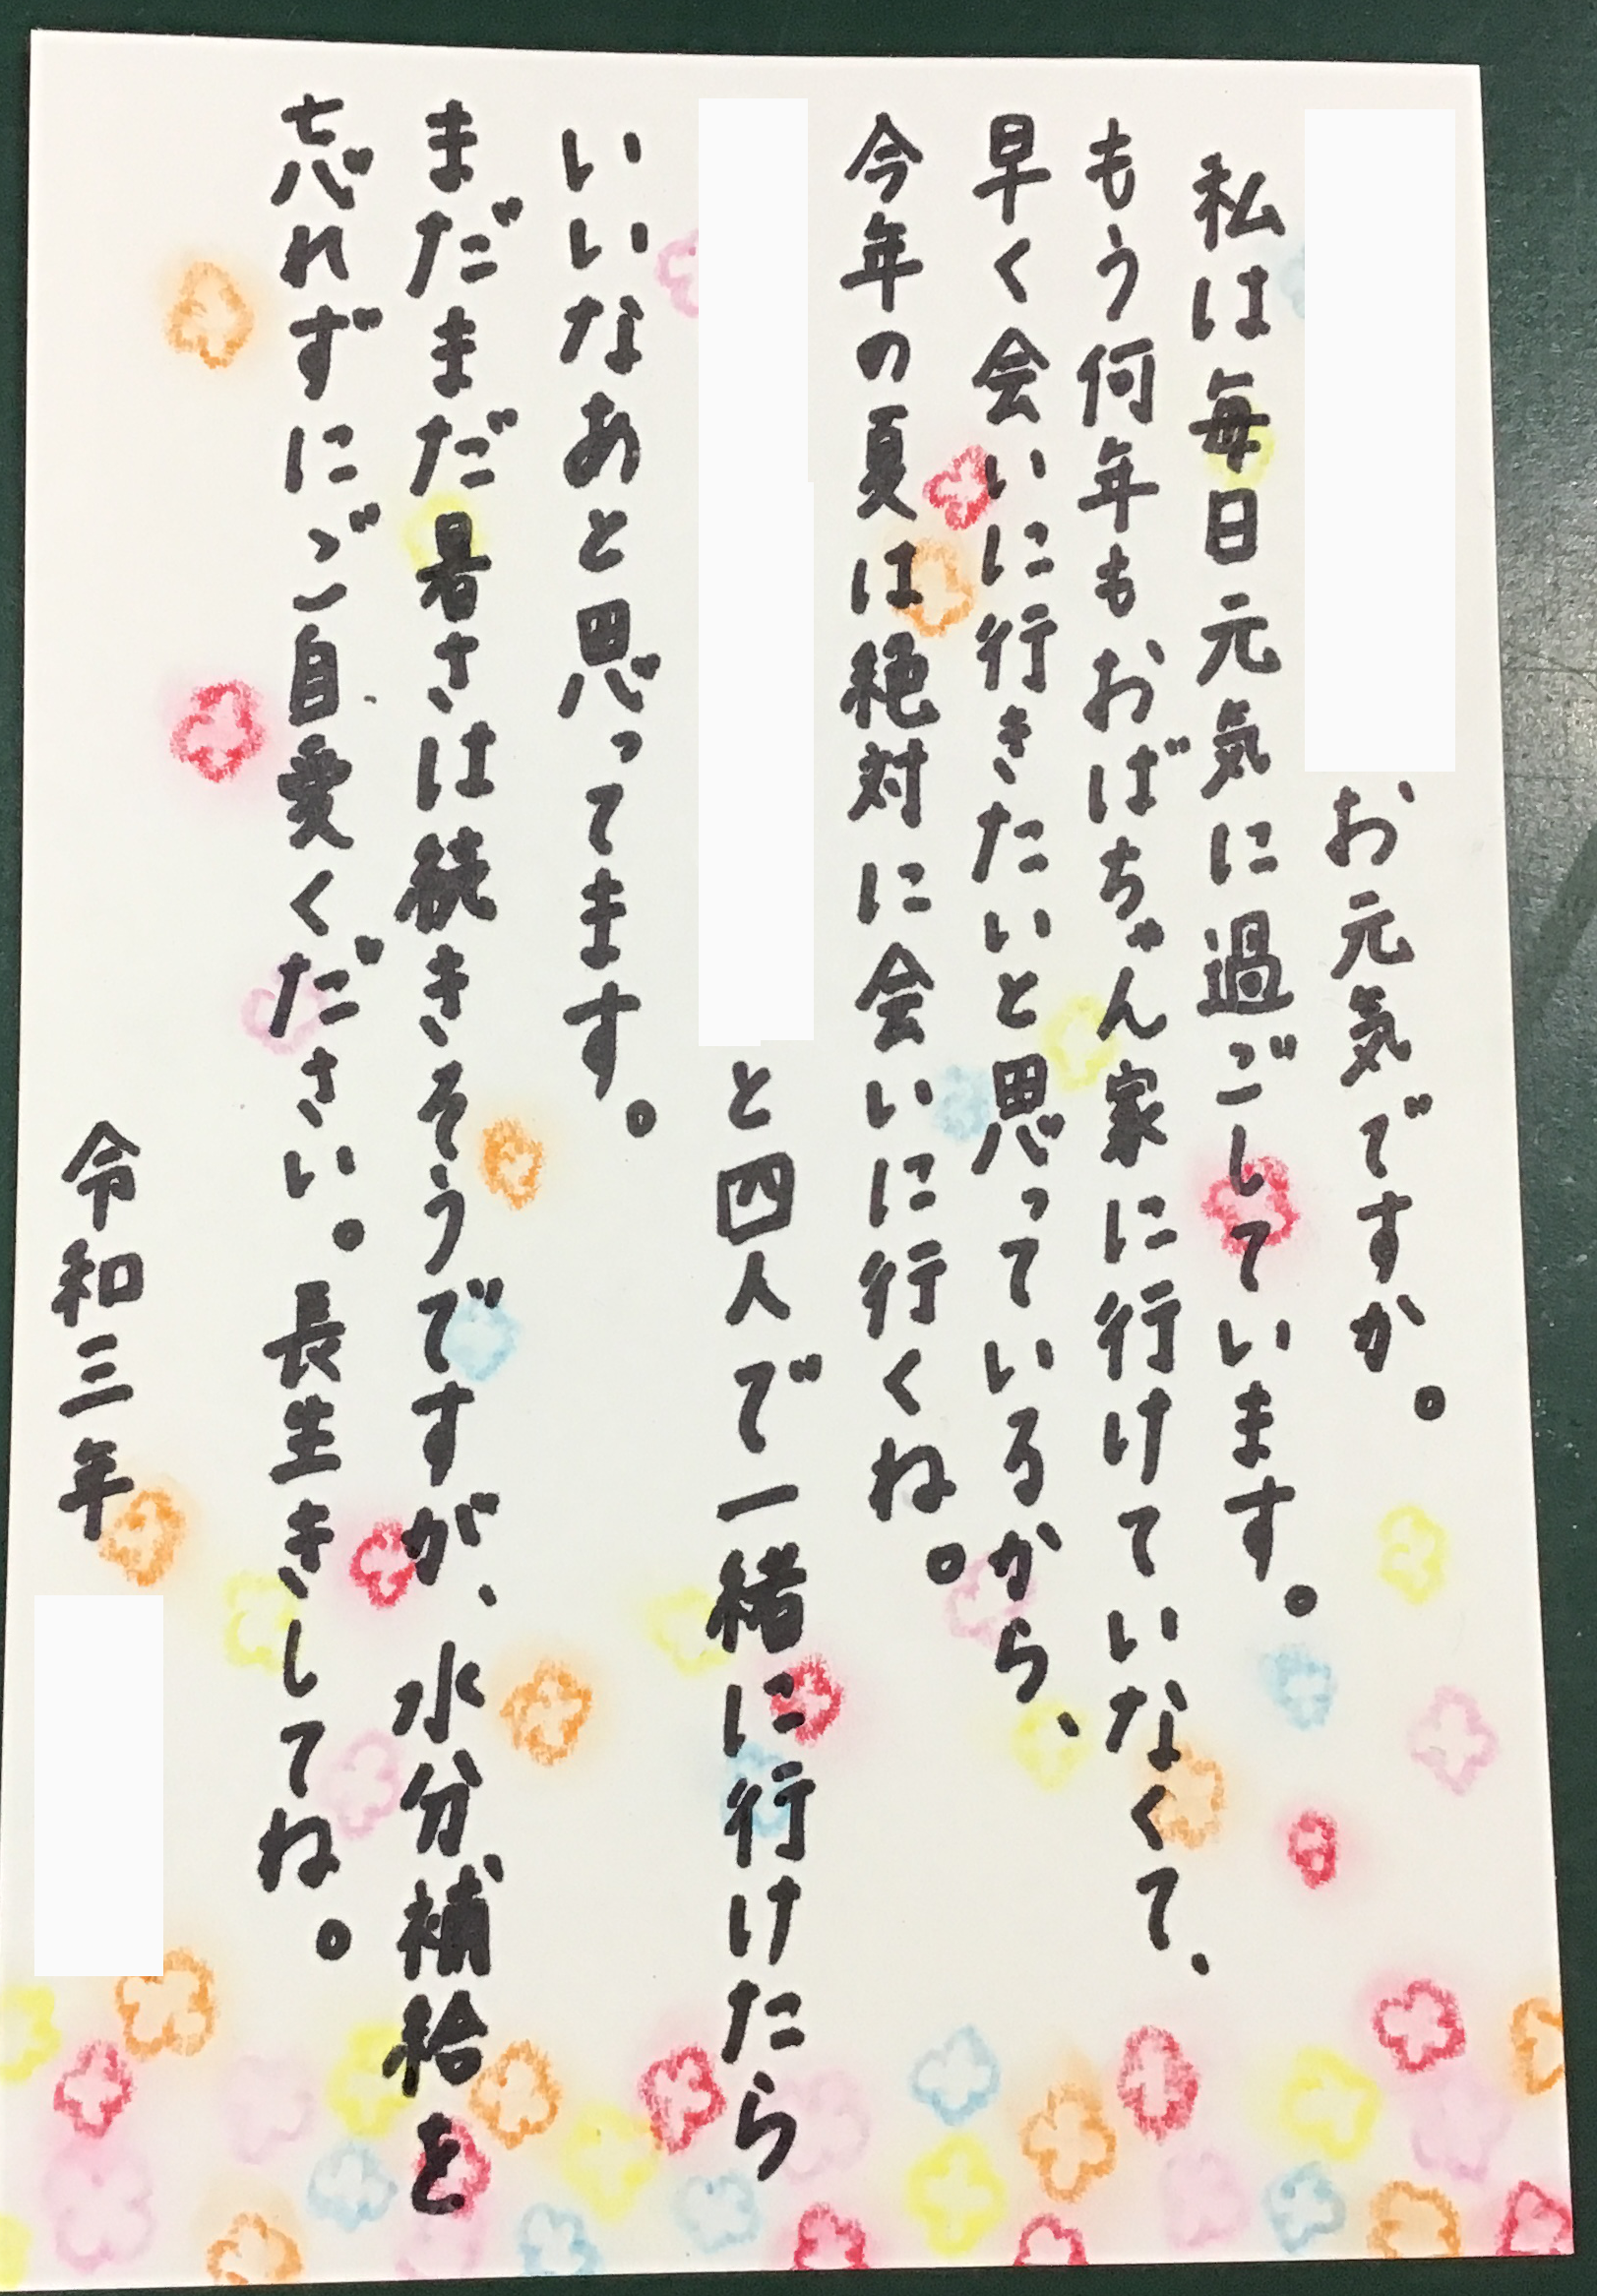 お元気ですか。
私は毎日元気に過ごしています。
もう何年もおばちゃん家に行けていなくて、
早く会いに行きたいと思っているから、
今年の夏は絶対に会いに行くね。
と四人で一緒に行けたら
いいなあと思ってます。
まだまだ暑さは続きそうですが、水分補給を
忘れずにご自愛ください。長生きしてね。
令和三年